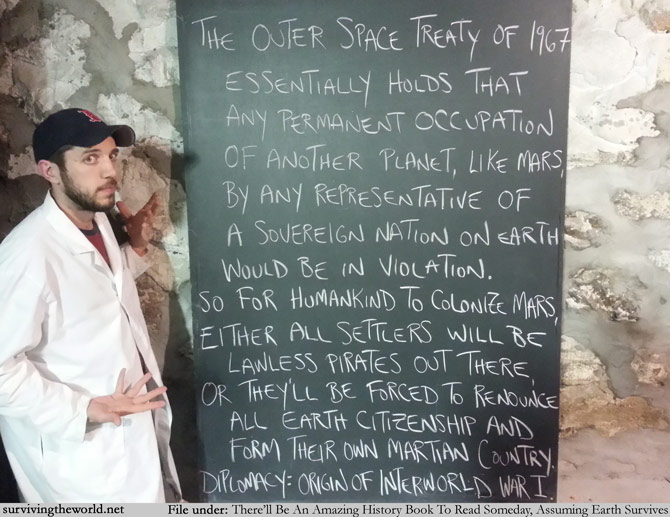 THE OUTER SPACE TREATY OF 1967
ESSENTIALLY HOLDS THAT
ANY PERMANENT OCCUPATION
OF ANOTHER PLANET, LIKE MARS,
BY ANY REPRESENTATIVE OF
A SOVEREIGN NATION ON EARTH
WOULD BE IN VIOLATION.
SO FOR HUMANKIND TO COLONIZE MARS,
EITHER ALL SETTLERS WILL BE
LAWLESS PIRATES OUT THERE,
OR THEY'LL BE FORCED TO RENOUNCE
ALL EARTH CITIZENSHIP AND
FORM THEIR OWN MARTIAN COUNTRY.
DIPLOMACY: ORIGIN OF INTERWORLD WAR I.
survivingtheworld.net File under: There'll Be An Amazing History Book To Read Someday, Assuming Earth Survives